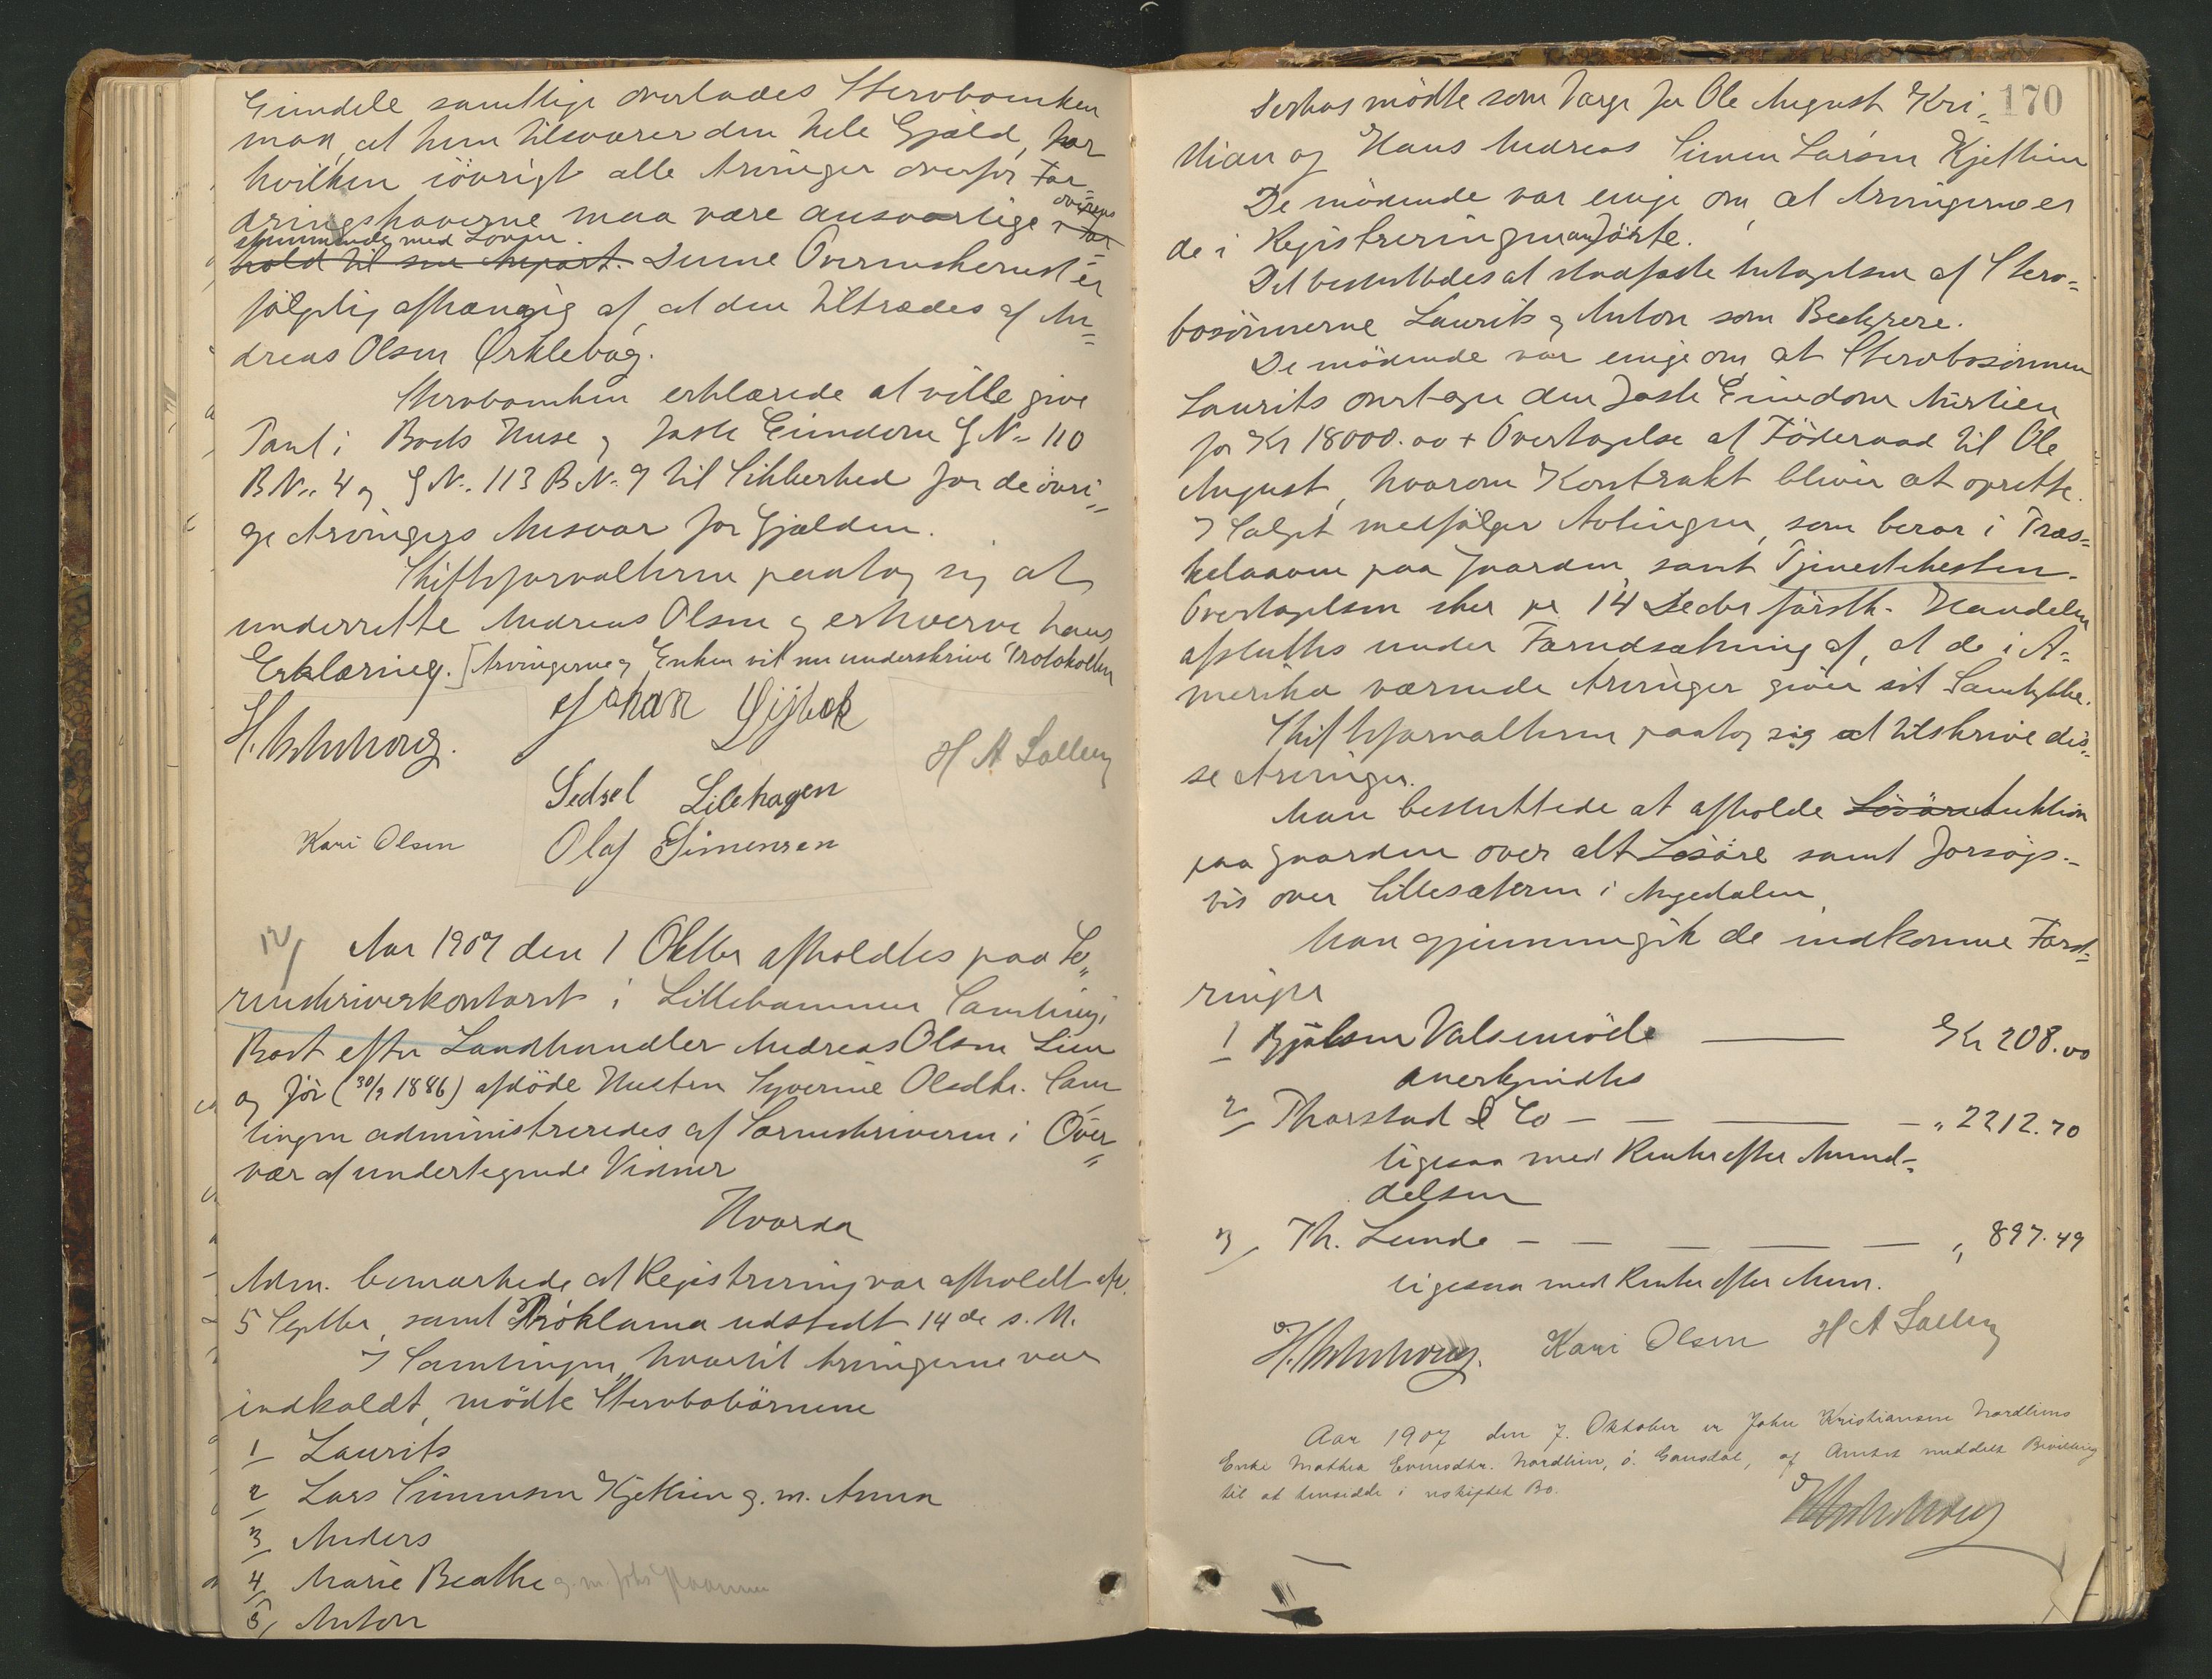 Eiendele samtlige overlades Stervboenken
mod, at hun tilsvarer den hele Gjæld, for
hvilken iövrigt alle Arvinger overfor For-
dringshaverne maa være ansvarlige i for
overens
stemmende med Loven.
hold til sin Arvpart. Denne Overenskomst er
fölgelig afhængig af at den tiltrædes af An-
dreas Olsen Örklebög.
Stervboenken erklærede at ville give
Pant i Boets Huse og faste Eiendom G N. 110
B N. 4 og G N. 113 B N. 9 til Sikkerhed for de övri-
ge Arvingers Ansvar for Gjælden.
Skifteforvalteren paatog sig at
underrette Andreas Olsen og erhverve hans
Erklæring. [Arvingerne og Enken vil nu underskrive Protokollen
Johan
H A
Sidsel Lilehagen
Kari Olsen
Olaf Simensen
12/ Aar 1907 den 1 Oktbr afholdtes paa So-
renskriverkontoret i Lillehammer Samling i
Boet efter Landhandler Andreas Olsen Lien
og för (30/3 1886) afdöde Hustru Syverine Olsdtr. Sam-
lingen administreredes af Sorenskriveren i Over-
vær af undertegnede Vidner
Hvorda
Adm. bemærkede at Registrering var afholdt
5 Septbr, samt Proklama udstedt 14de s. M.
I Samlingen, hvortil Arvingerne var
indkaldt, mödte Stervbobörnene
1 Laurits
2 Lars Simensen Kjetlien g. m. Anna
3 Anders
4 Marie Beathe g. m. Johs
5 Anton
170
Derhos mödte som Værge for Ole August Kri-
stian og Hans Andreas Simen Larsen Kjetlien
De mödende var enige om, at Arvingerne er
de i Registreringen anförte.
Det besluttedes at stadfæste Antagelsen af Sterv-
bosönnerne Laurits og Anton som Bestyrere.
De mödende var enige om at Stervbosönnen
Laurits overtager den faste Eiendom
for Kr 18000.00 + Overtagelse af Föderaad til Ole
August, hvorom Kontrakt bliver at oprette.
I Salget medfölger Avlingen, som beror i Træs-
kelaaven paa Gaarden, samt Tjenestehesten.
Overtagelsen sker pr. 14 Decbr förstk. Handelen
afsluttes under Forudsætning af, at de i A-
merika værende Arvinger giver sit Samtykke.
Skifteforvalteren paatog sig at tilskrive dis-
se Arvinger.
Man besluttede at afholde Lösöre Auktion
paa Gaarden over alt Lösöre samt forsögs-
vis over Lillesæteren i
Man gjennemgik de indkomne Ford-
ringer
1 Bjölsen Valsemölle — Kr 208.00
anerkjendtes
2 Thorstad & Co — — — — „ 2212.70
ligesaa med Renter efter Anmel-
delsen
3 Th. Lunde — — — — — „ 897.49
ligesaa med Renter efter Anm.
Kari Olsen H A
Aar 1907 den 7. Oktober er Johan Kristiansen Nordliens
Enke Mathea Evensdtr. Nordlien, ö. Gausdal, af Amtet meddelt Bevilling
til at hensidde i uskiftet Bo.